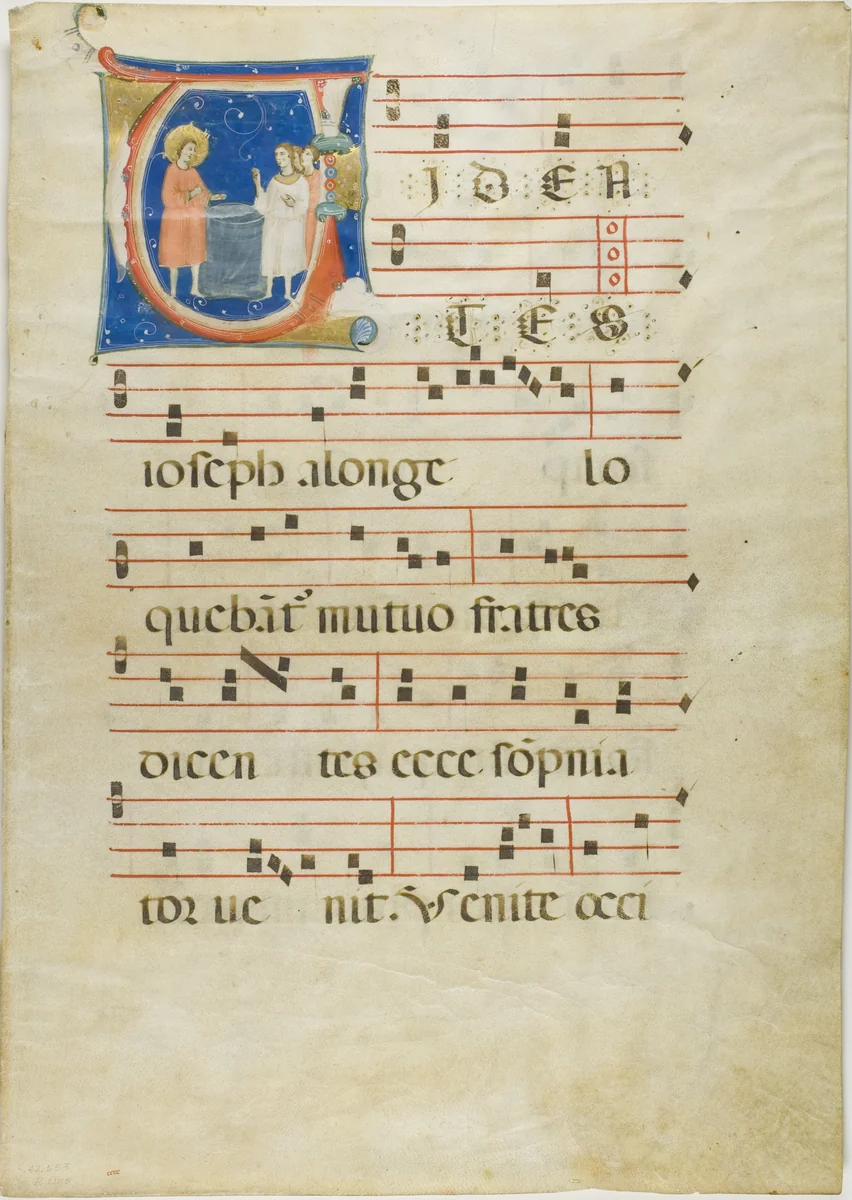 VIDEN
TES
ioseph alonge lo
quebãt᷑ mutuo fratres
dicen tes ecce sõpnia
tor ue nit. ℣ Venite occi